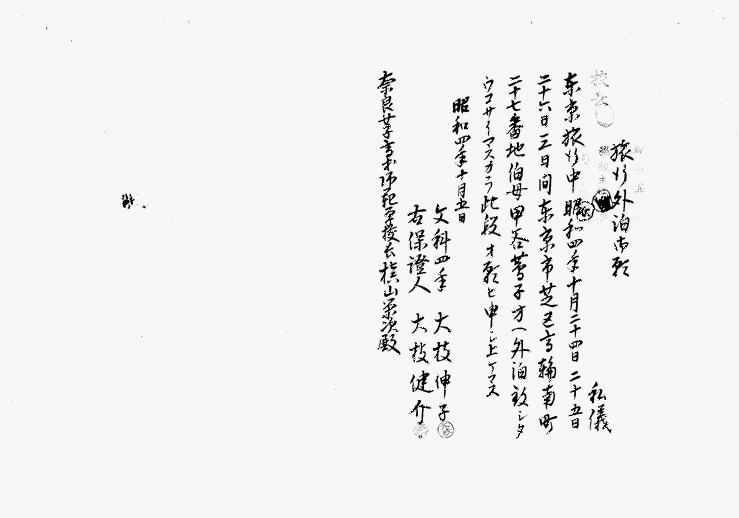 旅行外泊御願
私儀
東京旅行中昭和四年十月二十四日二十五日
二十六日三日間東京市芝区高輪南町
二十七番地伯母甲谷蔦子方ヘ外泊致シタ
ウゴザイマスカラ此段オ願ヒ申シ上ゲマス
昭和四年十月五日
文科四年 大枝伸子
右保證人 大枝健介
奈良女子高等師範学校長槇山栄次殿
校長